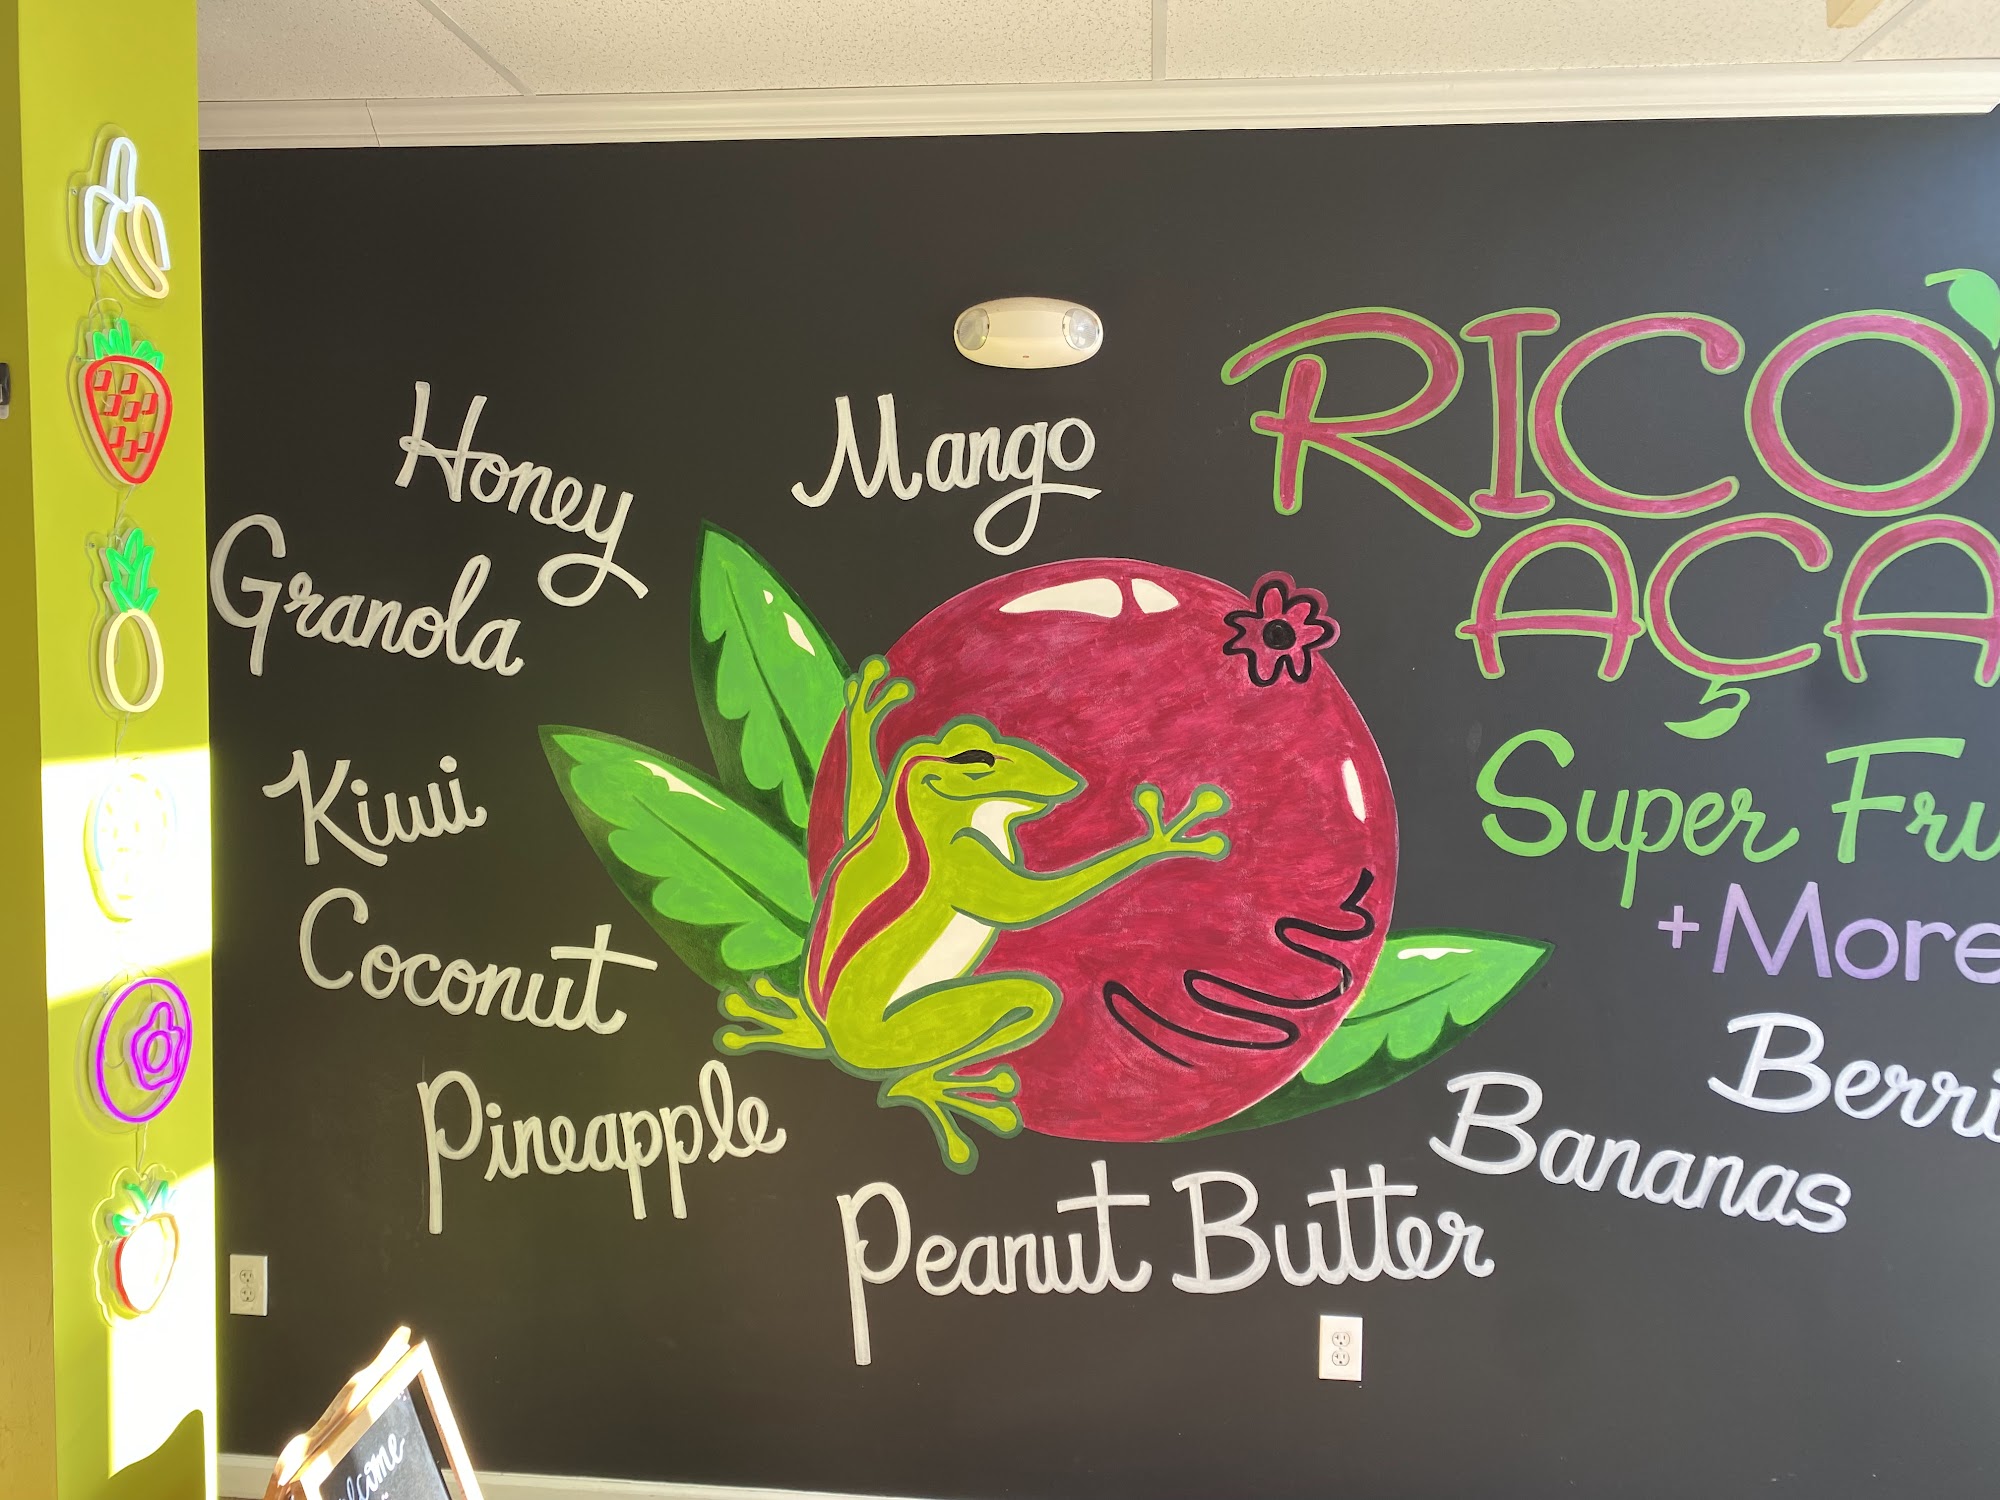 Honey
Mango
RICO'
AÇA
Granola
Super Fru
+More
Kiwi
Coconut
Berri
Bananas
Pineapple
Peanut Butter